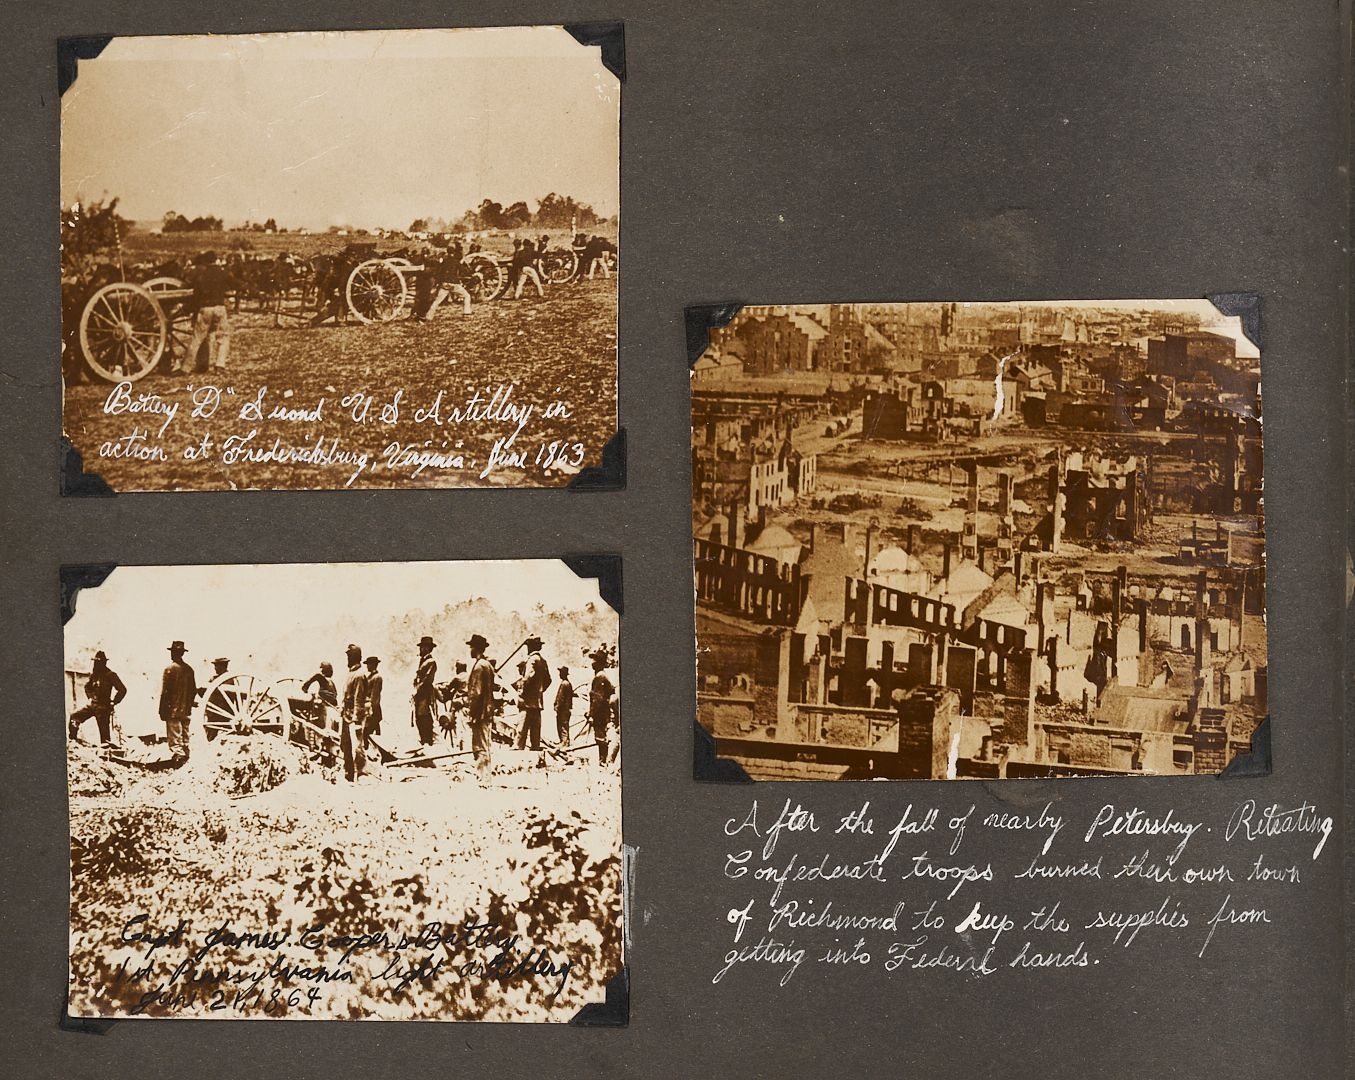 Battery "D" Second U.S Artillery in
action at Fredericksburg, Virginia, June 1863
Capt. James Cooper's Battery
1st Pennsylvania light artillery
June 21, 1864
After the fall of nearby Petersbug. Retreating
Confederate troops burned their own town
of Richmond to keep the supplies from
getting into Federal hands.